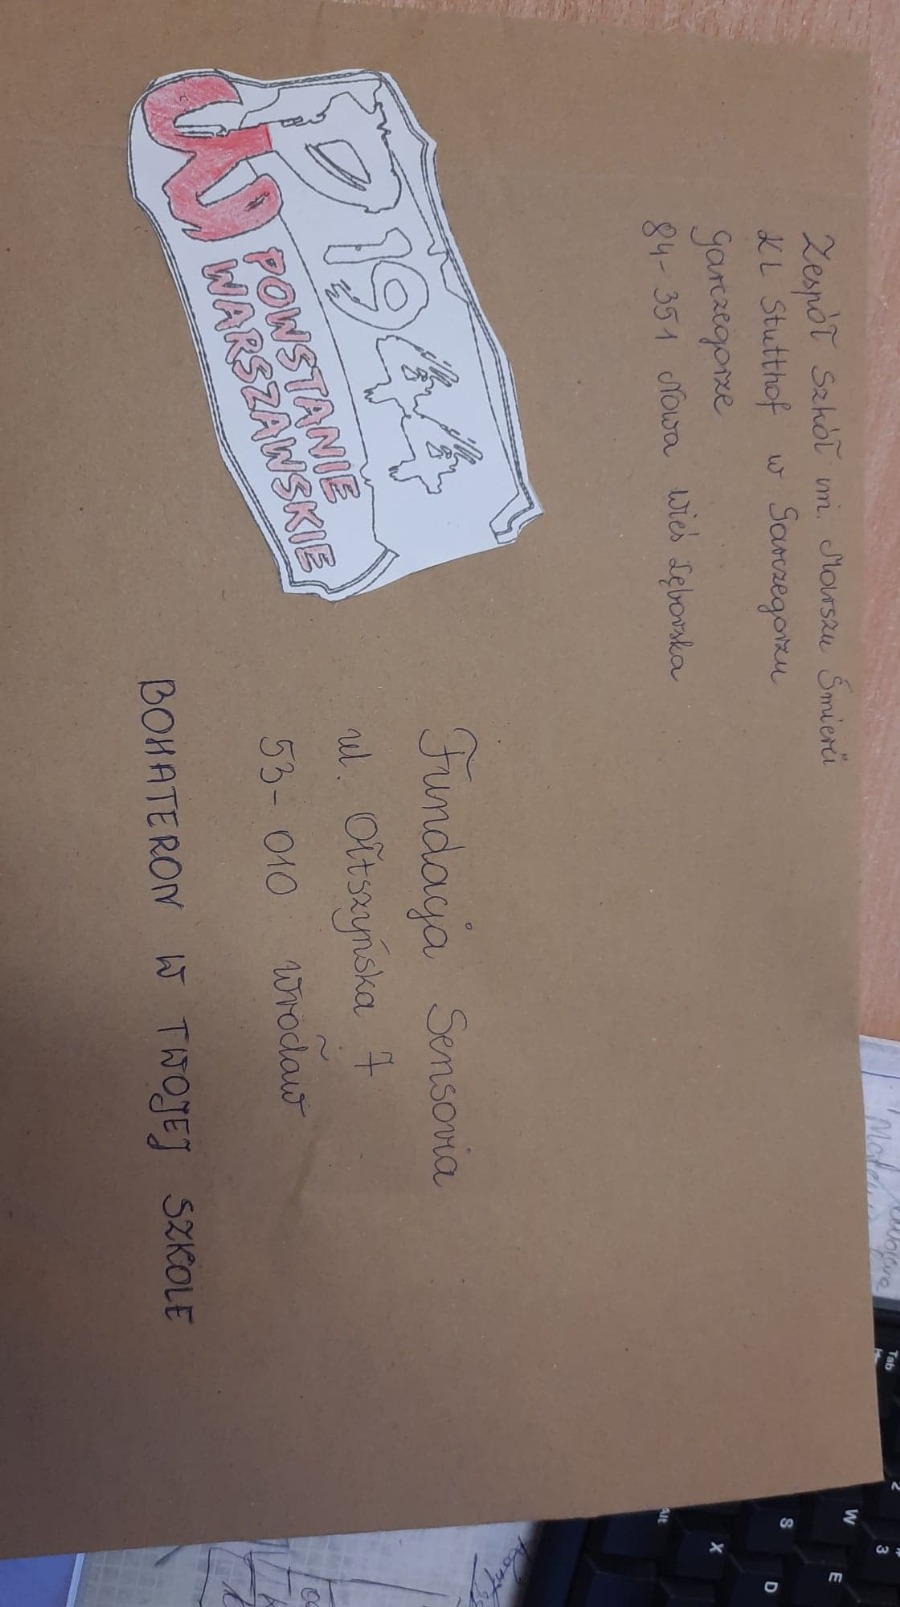 Zespół Szkół im. Marszu Śmierci
KL Stutthof w Garczegorzu
Garczegorze
84-351 Nowa Wieś Lęborska
1944
POWSTANIE
WARSZAWSKIE
Fundacja Sensoria
ul. Ołtaszyńska 7
53-010 Wrocław
BOHATERON W TWOJEJ SZKOLE
Tab
Alt
2
3
W
E
S
D
X